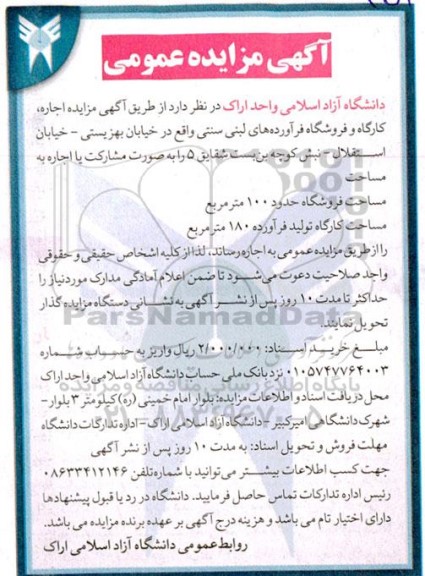 آگهی مزایده عمومی
دانشگاه آزاد اسلامی واحد اراک در نظر دارد از طریق آگهی مزایده اجاره،
کارگاه و فروشگاه فرآورده‌های لبنی سنتی واقع در خیابان بهزیستی - خیابان
استقلال - نبش کوچه بن‌بست شقایق ۵ را به صورت مشارکت یا اجاره به
مساحت
مساحت فروشگاه حدود ۱۰۰ متر مربع
مساحت کارگاه تولید فرآورده ۱۸۰ متر مربع
را از طریق مزایده عمومی به اجاره رساند، لذا از کلیه اشخاص حقیقی و حقوقی
واجد صلاحیت دعوت می‌شود تا ضمن اعلام آمادگی مدارک مورد نیاز را
حداکثر تا مدت ۱۰ روز پس از نشر آگهی به نشانی دستگاه مزایده گذار
تحویل نمایند.
مبلغ خرید اسناد: ۲/۰۰۰/۰۰۰ ریال واریز به حساب شماره
۰۱۰۵۷۴۷۷۶۴۰۰۳ نزد بانک ملی حساب دانشگاه آزاد اسلامی واحد اراک
محل دریافت اسناد و اطلاعات مزایده: بلوار امام خمینی (ره) کیلومتر ۳ بلوار -
شهرک دانشگاهی امیرکبیر - دانشگاه آزاد اسلامی اراک - اداره تدارکات دانشگاه
مهلت فروش و تحویل اسناد: به مدت ۱۰ روز پس از نشر آگهی
جهت کسب اطلاعات بیشتر می‌توانید با شماره تلفن ۰۸۶۳۳۴۱۲۱۴۶
رئیس اداره تدارکات تماس حاصل فرمایید. دانشگاه در رد یا قبول پیشنهادها
دارای اختیار تام می باشد و هزینه درج آگهی بر عهده برنده مزایده می باشد.
روابط عمومی دانشگاه آزاد اسلامی اراک
ParsNamadData